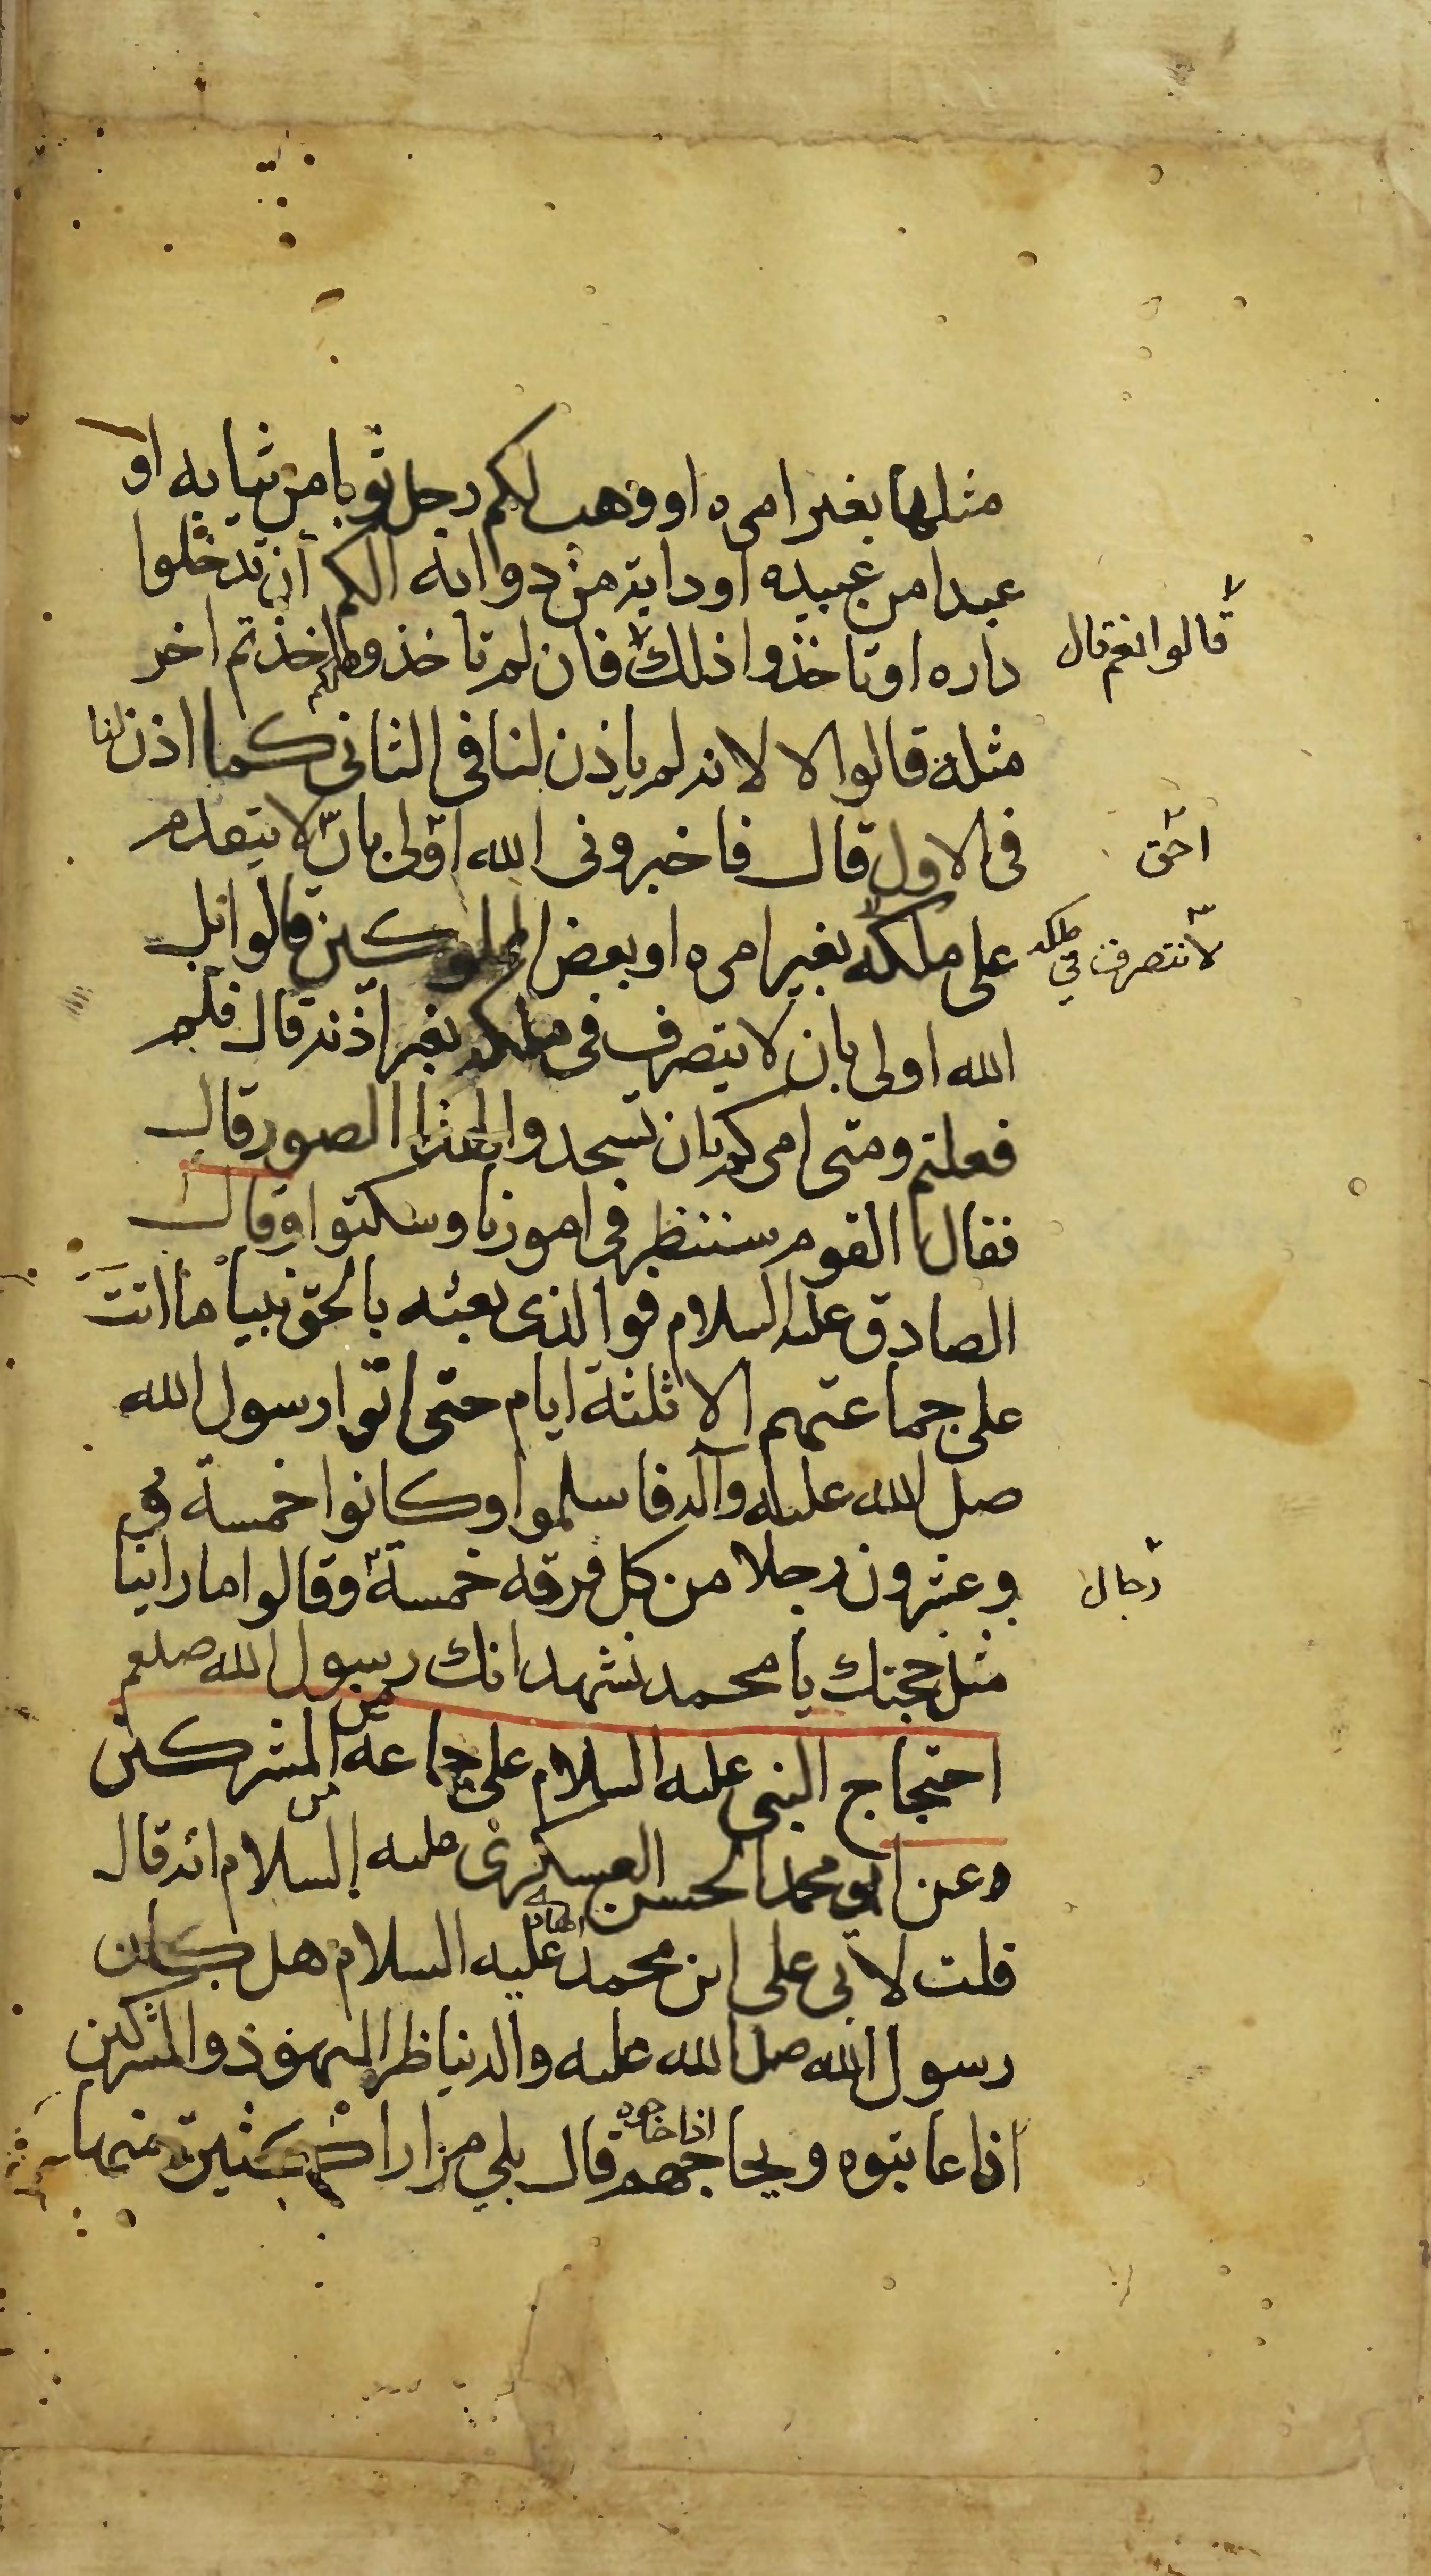 مثلها بغير امره او وهب لكم رجل ثوبا من ثيابه او
عبدا من عبيده او دابة من دوابه الكم ان تدخلوا
داره او تاخذوا ذلك فان لم تاخذوه اخذتم اخر
قالوا نعم قال
مثله قالوا لا لانه لم ياذن لنا في الثاني كما اذن لنا
في الاول قال فاخبروني الله اولى بان لا يتقدم
احق
على ملكه بغير امره او بعض المملوكين قالوا بل
لا نتصرف في ملكه
الله اولى بان لا يتصرف في ملكه بغير اذنه قال فلم
فعلتم ومتى امركم بان تسجدوا لهذا الصور قال
فقال القوم سننظر في امورنا وسكتوا وقال
الصادق عليه السلام فوالذي بعثه بالحق نبياً ما انتَ
على جماعتهم الا ثلثة ايام حتى اتوا رسول الله
صل الله عليه وآله فاسلموا وكانوا خمسة و
وعشرون رجلا من كل فرقه خمسة وقالوا ما راينا
رجال
مثل حجتك يا محمد نشهد انك رسول الله صلعم
احتجاج النبي عليه السلام على جماعه من المشركين
وعن ابو محمد الحسن العسكري عليه السلام انه قال
قلت لابي علي ابن محمد عليه السلام هل كان
رسول الله صل الله عليه واله يناظر اليهود والمشركين
اذا عاتبوه ويحاجهم قال بلى مرارا كثيرة منها